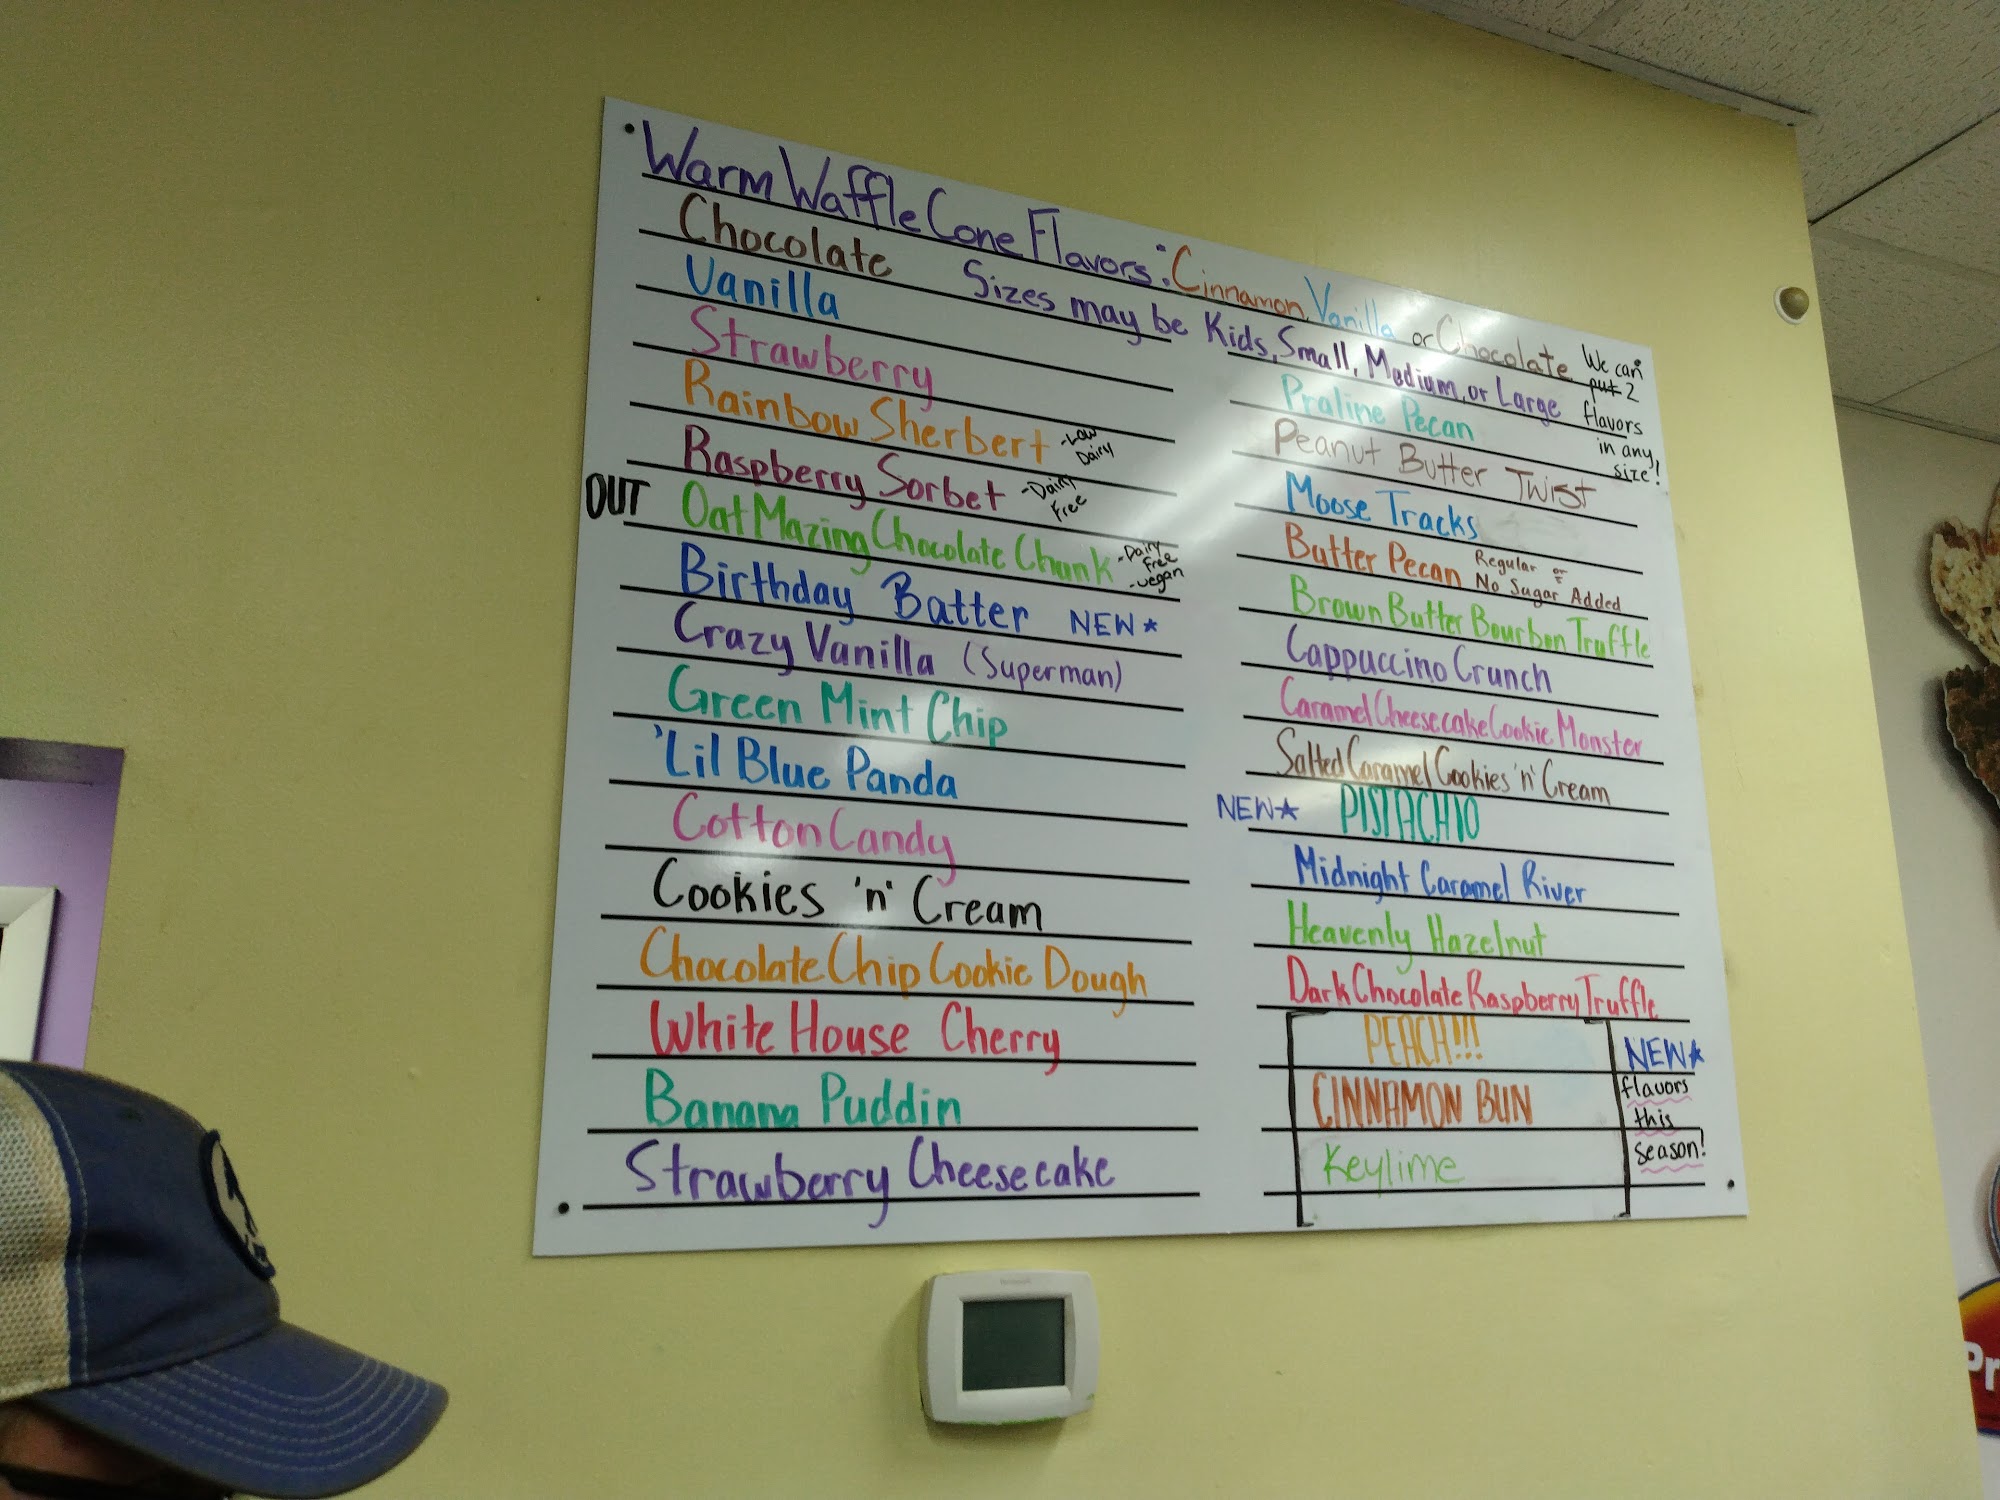 Warm Waffle Cone Flavors: Cinnamon, Vanilla or Chocolate
Sizes may be Kids, Small, Medium, or Large
We can
put 2
flavors
in any
size!
Chocolate
Vanilla
Strawberry
Rainbow Sherbert -Low Dairy
Raspberry Sorbet -Dairy Free
OUT Oat Mazing Chocolate Chunk -Dairy Free -vegan
Birthday Batter NEW★
Crazy Vanilla (Superman)
Green Mint Chip
'Lil Blue Panda
Cotton Candy
Cookies 'n' Cream
Chocolate Chip Cookie Dough
White House Cherry
Banana Puddin
Strawberry Cheesecake
Praline Pecan
Peanut Butter Twist
Moose Tracks
Butter Pecan Regular or No Sugar Added
Brown Butter Bourbon Truffle
Cappuccino Crunch
Caramel Cheesecake Cookie Monster
Salted Caramel Cookies 'n' Cream
NEW★ PISTACHIO
Midnight Caramel River
Heavenly Hazelnut
Dark Chocolate Raspberry Truffle
PEACH!!!
CINNAMON BUN
Keylime
NEW★
flavors
this
season!
Pr